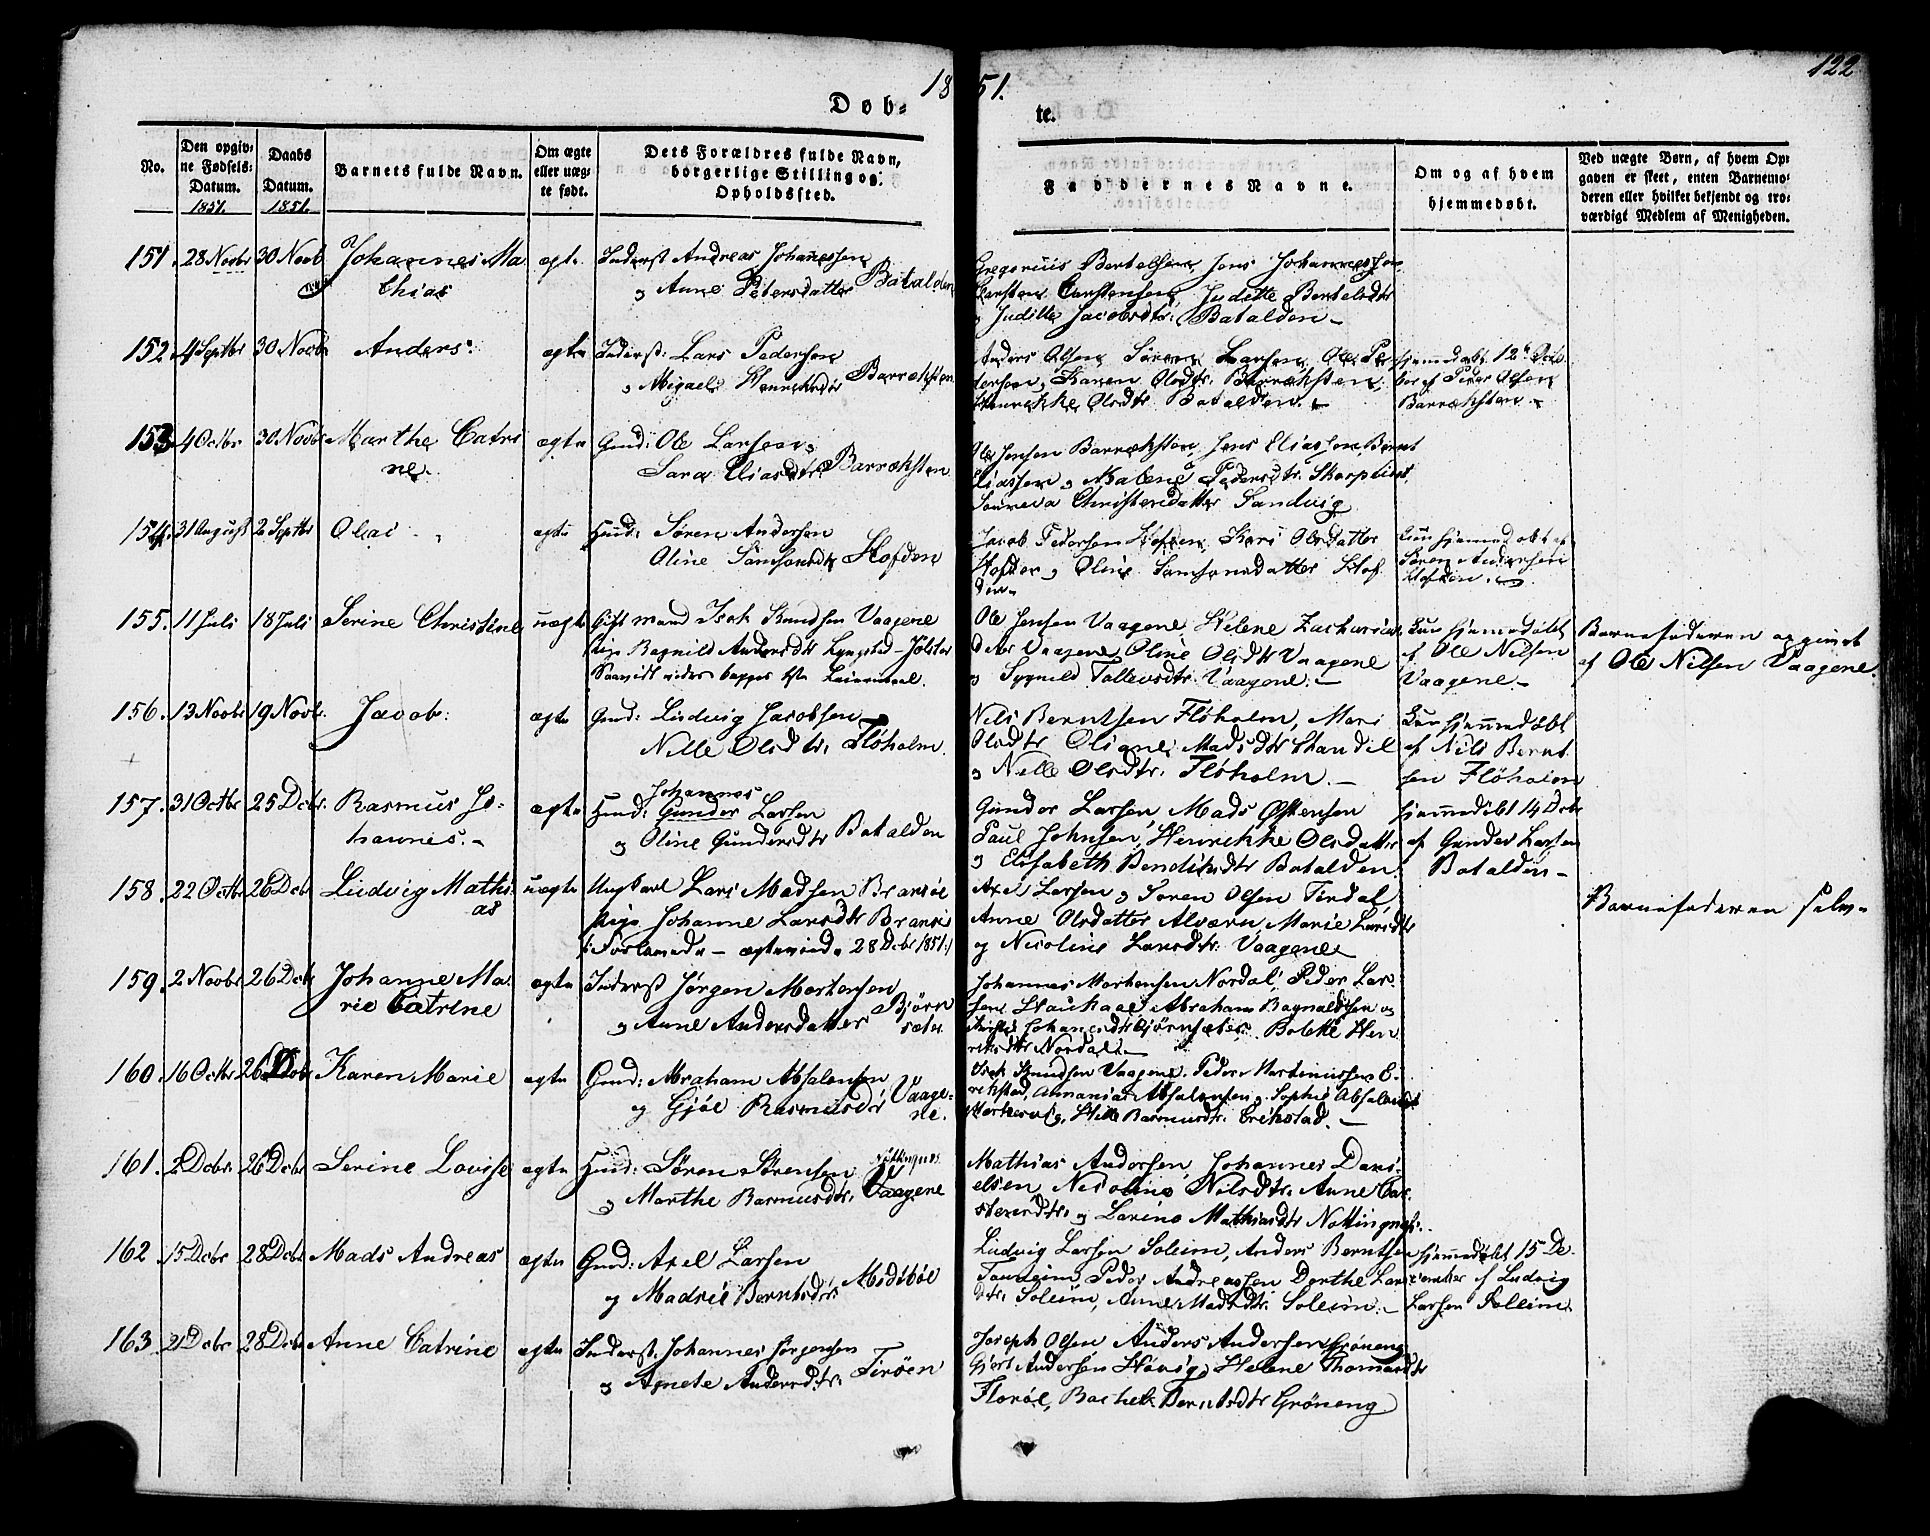 18 51.
122
Døb- te.
No.
Den opgiv-
ne Fødsels-
Datum.
1851.
Daabs
Datum.
1851.
Barnets fulde Navn.
Om ægte
eller uæg-
te født.
Dets Forældres fulde Navn,
borgerlige Stilling og
Opholdssted.
Faddernes Navne.
Om og af hvem
hjemmedøbt.
Ved uægte Børn, af hvem Op-
gaven er skeet, enten Barnemo-
deren eller hvilket bekjendt og tro-
værdigt Medlem af Menigheden.
151. 28 Novbr 30 Novb Johannes Ma
thias
ægte
Inderst Andreas Johanessen
og Anne Petersdatter Batalden
Gregorius Bertelsen, Jens Johannessen
Carsten Carstensen, Juditte Bertelsdtr
og Juditte Jacobsdtr: Batalden –
152. 4 Septbr 30 Novbr Anders.
ægte
Inderst: Lars Pedersen
og Abigael Henreksdtr Barrøksten.
Anders Olsen, Søren Larsen, Ole Pe
dersen, Karen Olsdtr. Barrøksten,
Henrekke Olsdtr. Batalden. –
hjemmedøbt 12te Octo
ber af Peder Olsen
Barrøksten –
153. 4 Octbr 30 Novbr Marthe Catri
ne.
ægte
Gmd: Ole Larsen og
Sara Eliasdtr Barrøksten
Ole Jensen Barrøksten, Jens Eliassen, Bernt
Eliassen og Malene Pedersdtr. Skorpen
Christensdatter Sandvig
154. 31 August 2 Septbr Olai
ægte
Hmd: Søren Andersen
Oline Samsonsdtr Hofden
Jacob Pedersen Hofden, Kari Olsdatter
Hofden og Oline Samsonsdatter Hof
den –
hjemmedøbt af
Søren Andersen
Hofden. –
155. 11 Juli 18 Juli Serine Christine
uægte
Gift mand Isak Knudsen Vaagene
Pige Ragnild Andersdtr Lyngstad – Jølster
begges 1ste Leiermaal.
Ole Jensen Vaagene, Helene Zacharias
datter Vaagene, Oline Olsdtr Vaagene
og Sygnild Tollevsdtr. Vaagene. –
Kun hjemmedøbt
af Ole Nilsen
Vaagene –
Barnefaderen opgivet
af Ole Nilsen Vaagene.
156. 13 Novbr 19 Novbr. Jacob.
ægte
Gmd: Ludvig Jacobsen
Nille Olsdtr. Fløholm.
Nils Berntsen Fløholm, Mari
Olsdtr Madsdtr Standal
og Nille Olsdtr. Fløholm. –
Kun hjemmedøbt
af Nils Bernt
sen Fløholm
157. 31 Octbr 25 Decbr. Rasmus Jo-
hannes. –
ægte
Johannes
Hmd: Gunder Larsen
og Oline Gundersdtr Batalden
Gunder Larsen, Mads Østensen
Paul Johnsen, Henrekke Olsdatter
og Elisabeth Bendiksdtr Batalden.
hjemmedøbt 14 Decbr
af Gunder Larsen
Batalden –
158. 22 Octbr 26 Dcbr Ludvig Mathi
as
uægte
Ungkarl Lars Madsen Bransøe
Pige Johanne Larsdtr Bransøe
(: Forlovede – ægteviede 28 Dcbr 1851 :)
Axel Larsen og Søren Olsen Tirdal,
Anne Olsdatter Alværn, Marie Larsdtr
og Nicoline Larsdtr. Vaagene
Barnefaderen selv –
159. 2 Novbr 26 Dcbr Johanne Ma
rie Catrine
ægte
Inderst Jørgen Mortensen
og Anne Andersdatter Bjørn
sætr.
Johannes Mortensen Nordal, Peder Lar-
sen Haukaae, Abraham Ragnaldsen og
Johannesdtr Bjørnsæter. Bolette Hen
riksdtr Nordal. –
160. 16 Octbr 26 Dcbr Karen Marie
ægte
Gmd: Abraham Absalonsen
og Gjøe Rasmusdtr Vaage-
ne.
Isak Knudsen Vaagene, Peder Martinussen E-
rikstad, Annanias Absalonsen og Sophie Absalonsdtr
Rasmusdtr. Erikstad. –
161. 2 Decbr 26 Dcbr Serine Lovise
ægte
Hmd: Søren Sørensen
og Marthe Rasmusdtr. Vaagene
Mathias Andersen, Johannes Dani-
elsen, Nicoline Nilsdtr. Anne Car-
stensdtr. og Larine Mathiasdtr Nottingnes.
162 15 Dcbr 28 Dcbr Mads Andreas
ægte
Gmd: Axel Larsen
og Madsie Berntsdtr. Midtbøe
Ludvig Larsen Soleim, Anders Berntsen
Peder Andreassen, Dorthe Lars
dtr. Soleim, Anne Madsdtr. Soleim. –
hjemmedøbt 15 De-
cember af Ludvig
Larsen Solleim
163. 2 Dcbr 28 Dcbr Anne Catrine
ægte
Inderst Johannes Jørgensen
og Agnete Andersdtr. Tirøen
Joseph Olsen, Anders Andersen Grøneng
Gjert Andersen Høvig, Helene Thomasdtr
Florøe, Rachel Berntsdtr Grøneng